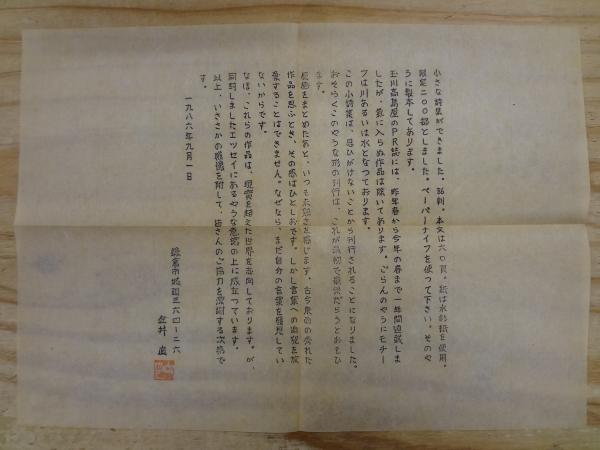 小さな詩集ができました。B6判。本文は六〇頁。紙は水彩紙を使用。
限定二〇〇部としました。ペーパーナイフを使つて下さい。そのや
うに製本してあります。
玉川高島屋のPR誌には、昨年春から今年の春まで一年間連載しま
したが、気に入らぬ作品は除いてあります。ごらんのやうにモチー
フは川あるいは水となつております。
この小詩集は、思ひがけないことから刊行されることになりました。
おそらくこのやうな形の刊行は、これが最初で最後だらうとおもひ
ます。
原稿をまとめたあと、いつも未熟さを感じます。古今東西の秀れた
作品を思ふとき、その感はひとしおです。しかし言葉への
棄することはできません。なぜなら、まだ自分の言葉を発見してい
ないからです。
なほ、これらの作品は、現実を超えた世界を志向しております。が、
同封しましたエツセイにあるやうな意識の上に成立つています。
以上、いささかの感想を附して、皆さんのご協力を深謝する次第で
す。
一九八六年九月一日
鎌倉市城廻三六四ー二六